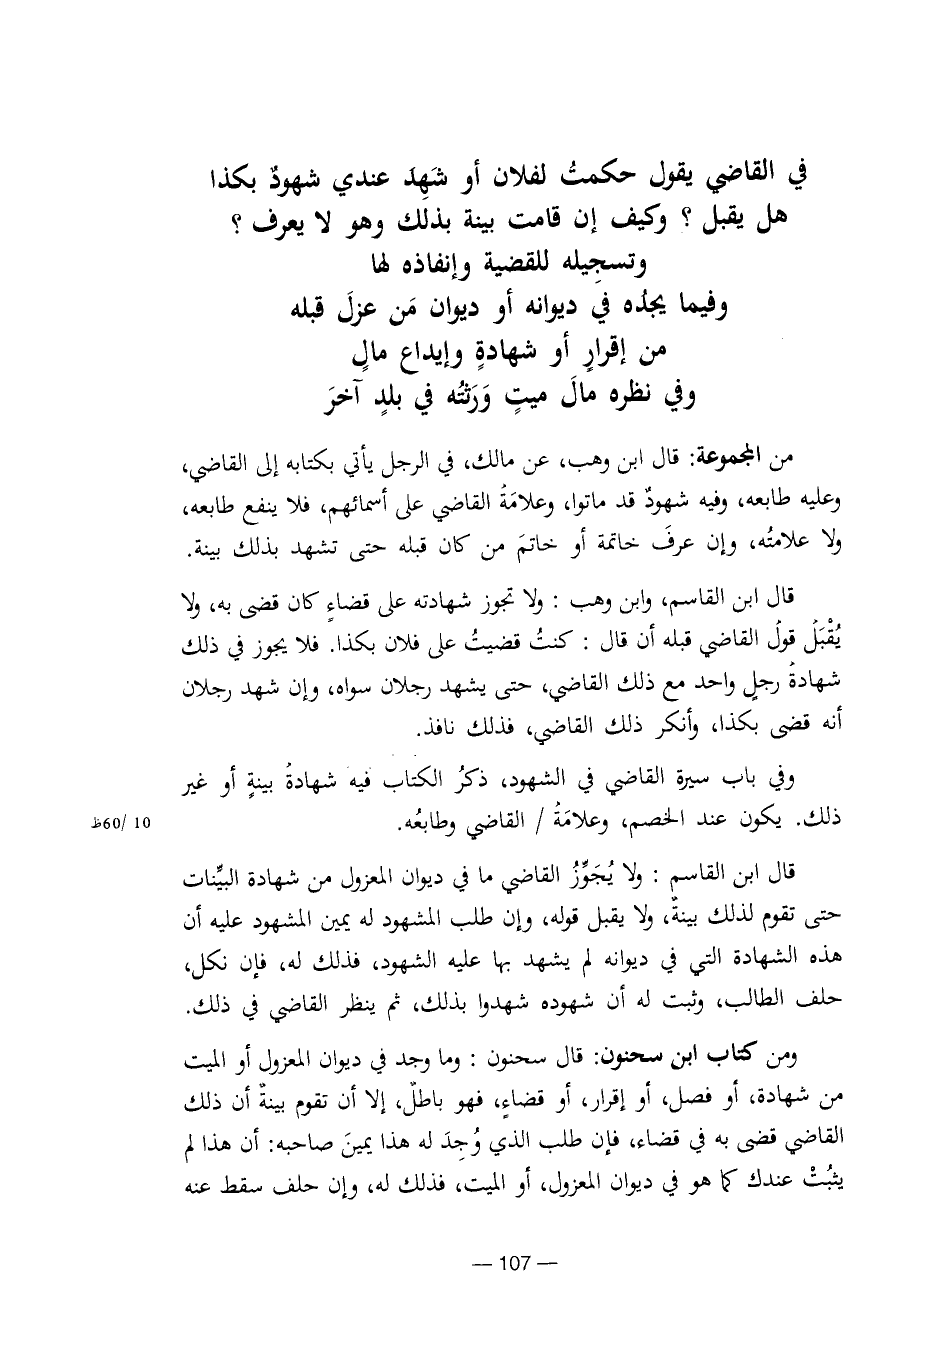 في القاضي يقول حكمتُ لفلان أو شَهِدَ عندي شهودٌ بكذا
هل يقبل ؟ وكيف إن قامت بينة بذلك وهو لا يعرف ؟
وتسجيله للقضية وإنفاذه لها
وفيما يجدُه في ديوانه أو ديوان مَن عزلَ قبله
من إقرارٍ أو شهادةٍ وإيداع مالٍ
وفي نظره مالَ ميتٍ وَرَثتُه في بلدٍ آخرَ
من المجموعة: قال ابن وهب، عن مالك، في الرجل يأتي بكتابه إلى القاضي،
وعليه طابعه، وفيه شهودٌ قد ماتوا، وعلامَةُ القاضي على أسمائهم، فلا ينفع طابعه،
ولا علامتُه، وإن عرفَ خاتمة أو خاتمَ من كان قبله حتى تشهد بذلك بينة.
قال ابن القاسم، وابن وهب : ولا تجوز شهادته على قضاءٍ كان قضى به، ولا
يُقْبَلُ قولُ القاضي قبله أن قال : كنتُ قضيتُ على فلان بكذا. فلا يجوز في ذلك
شهادةُ رجلٍ واحد مع ذلك القاضي، حتى يشهد رجلان سواه، وإن شهد رجلان
أنه قضى بكذا، وأنكر ذلك القاضي، فذلك نافذ.
وفي باب سيرة القاضي في الشهود، ذكرُ الكتاب فيه شهادةُ بينةٍ أو غير
ذلك. يكون عند الخصم، وعلامَةُ / القاضي وطابعُه.
10 /60ظ
قال ابن القاسم : ولا يُجَوِّزُ القاضي ما في ديوان المعزول من شهادة البيِّنات
حتى تقوم لذلك بينةٌ، ولا يقبل قوله، وإن طلب المشهود له يمين المشهود عليه أن
هذه الشهادة التي في ديوانه لم يشهد بها عليه الشهود، فذلك له، فإن نكل،
حلف الطالب، وثبت له أن شهوده شهدوا بذلك، ثم ينظر القاضي في ذلك.
ومن كتاب ابن سحنون: قال سحنون : وما وجد في ديوان المعزول أو الميت
من شهادة، أو فصل، أو إقرار، أو قضاءٍ، فهو باطلٌ، إلا أن تقوم بينةٌ أن ذلك
القاضي قضى به في قضاء، فإن طلب الذي وُجِدَ له هذا يمينَ صاحبه: أن هذا لم
يثبُتْ عندك كما هو في ديوان المعزول، أو الميت، فذلك له، وإن حلف سقط عنه
— 107 —